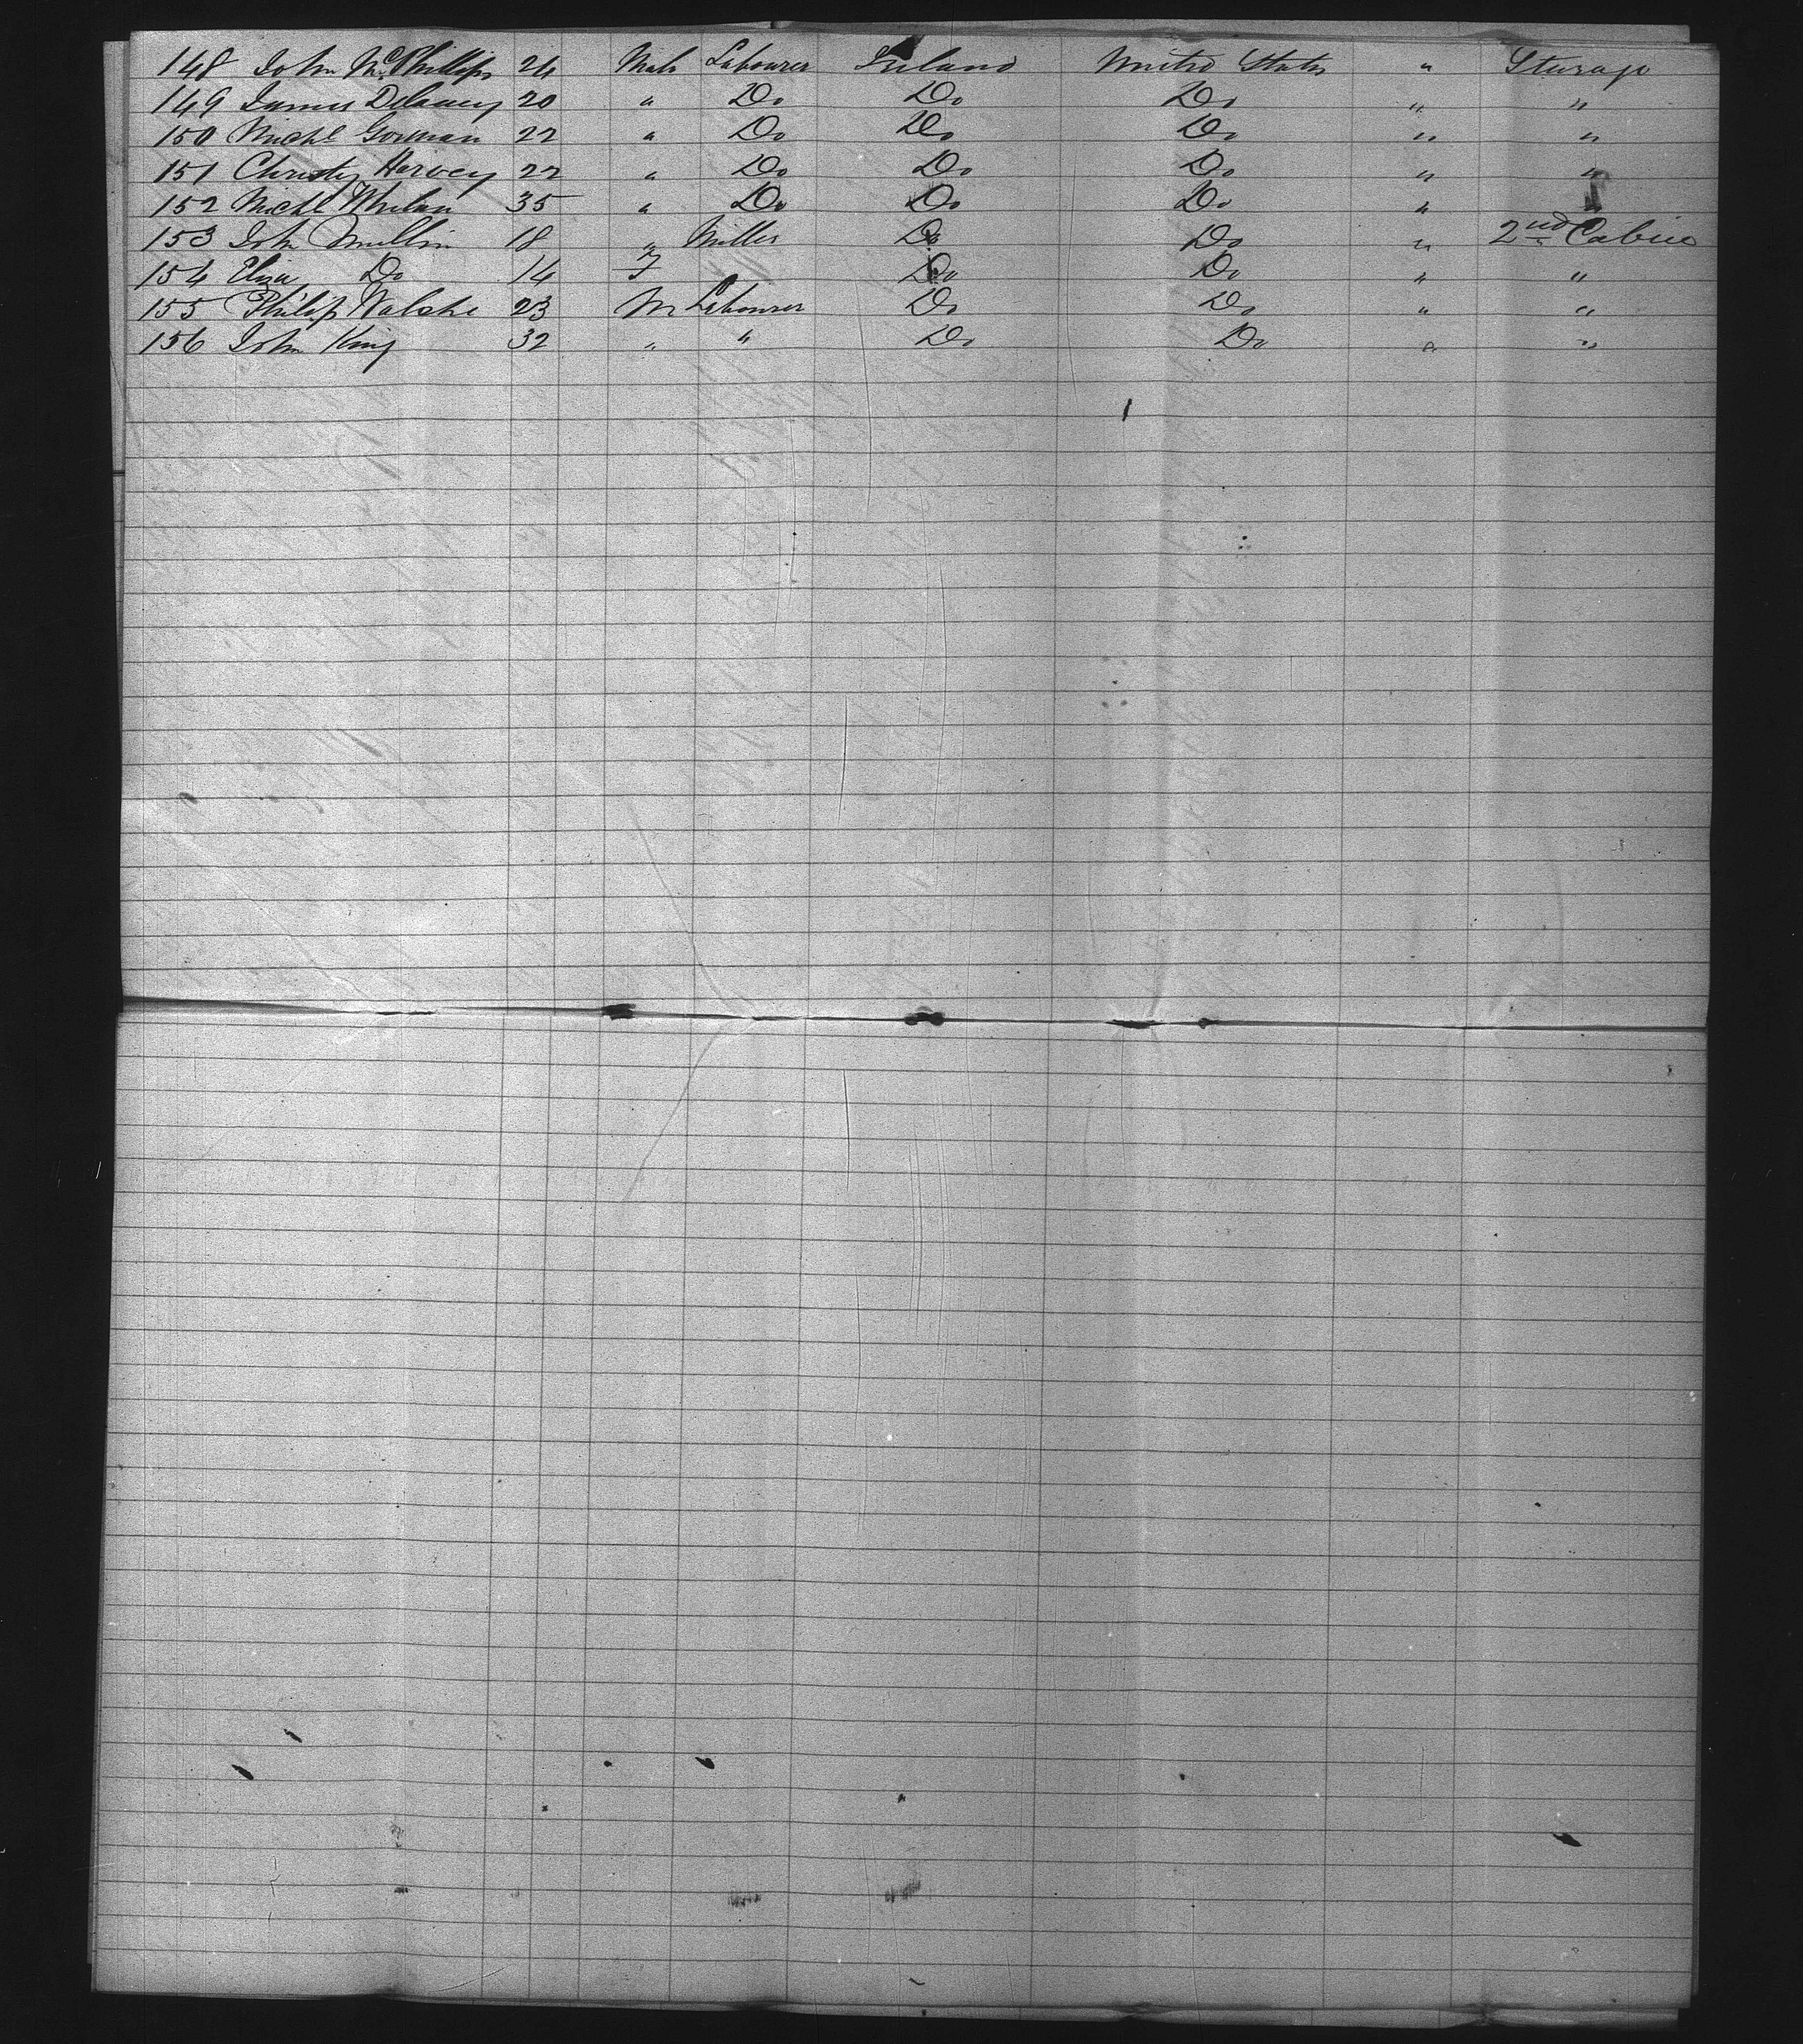 148 John McPhillips 24 Male Labourer Ireland United States " Steerage
149 James Delaney 20 " Do Do Do " "
150 Michl Gorman 22 " Do Do Do " "
151 Christy Harvey 22 " Do Do Do " "
152 Michl Whelan 35 " Do Do Do " "
153 John Mullin 18 " Miller Do Do " 2nd Cabin
154 Eliza Do 14 F Do Do " "
155 Philip Walshe 23 M Labourer Do Do " "
156 John King 32 " " Do Do " "